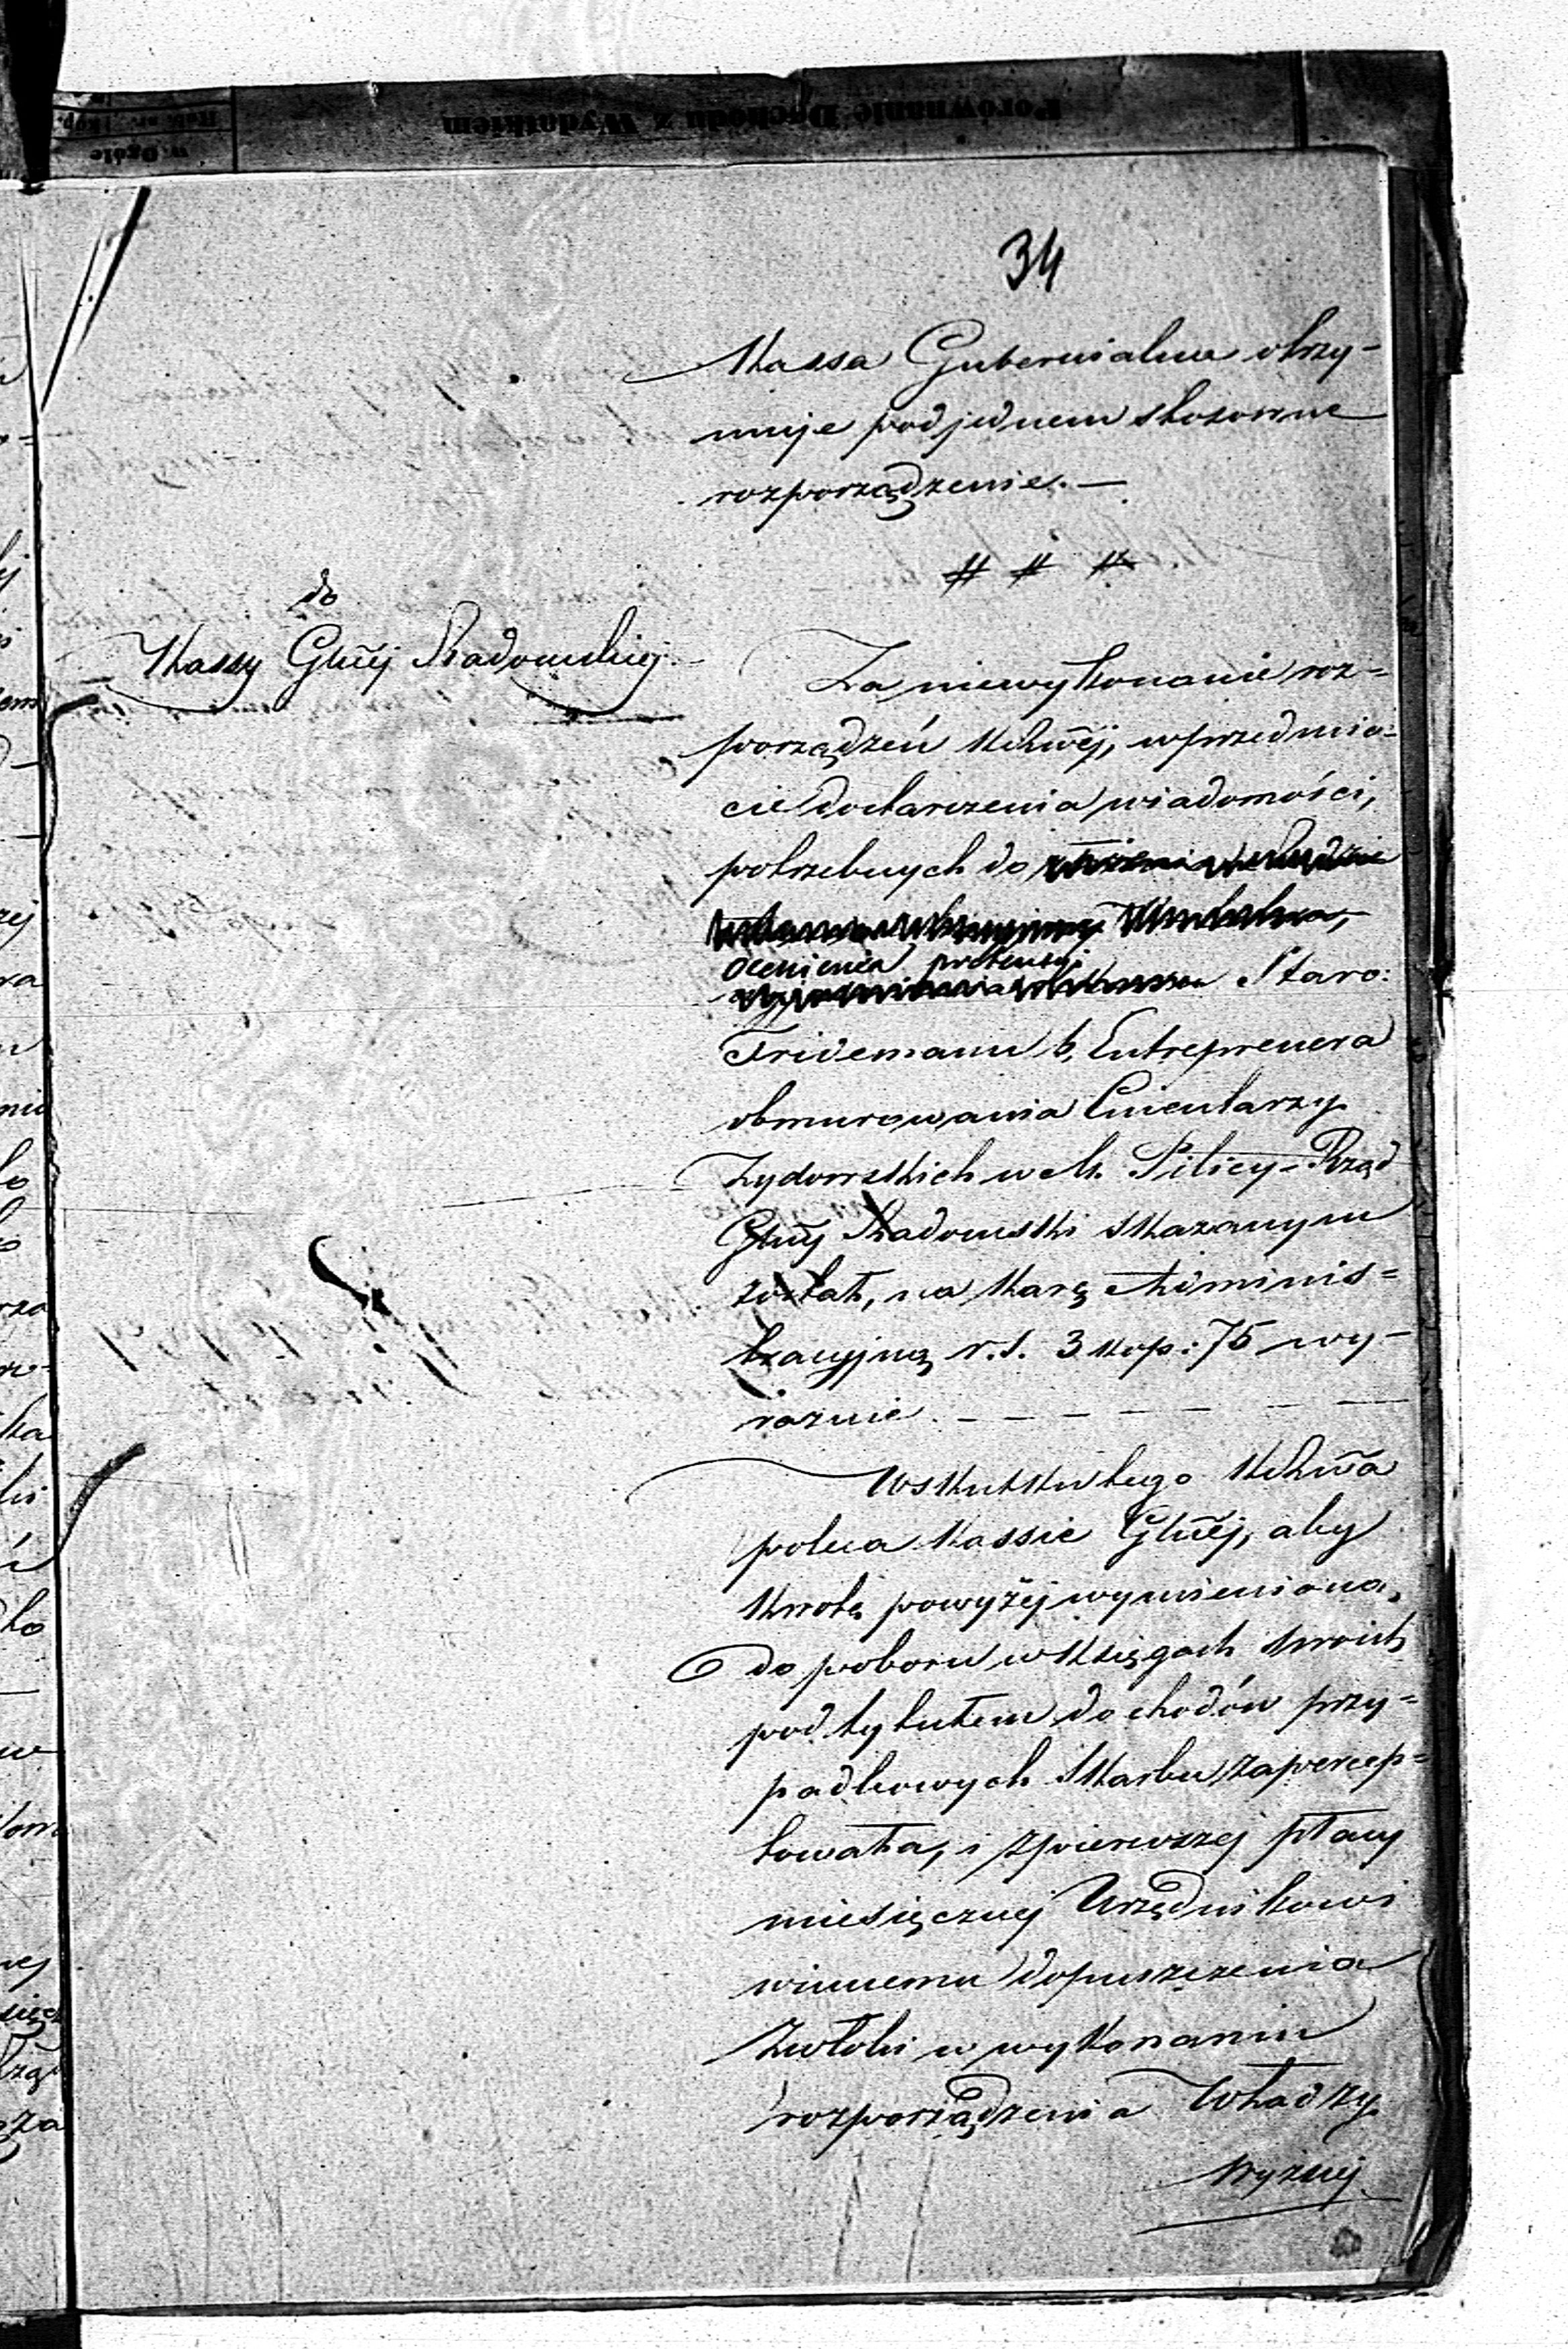 34
Kassa Gubernialna otrzy-
muje pod jednem stosowne
rozporządzenie. —
# # #
do
Kassy Głnej Radomskiej
Za niewykonanie roz-
porządzeń KRhwej, w przedmio-
cie dostarczenia wiadomości,
potrzebnych do
ocenienia pretensyi
Staro:
Fridemann b. Entreprenera
obmurowania Cmentarzy
Żydowskich w M. Pilicy - Rząd
Głny Radomski skazanym
został, na karę Adminis=
tracyjną r.s. 3 kop: 75 wy-
raznie. — — — — — —
Wskutku tego KRhwa
poleca Kassie Głnej, aby
kwotę powyżej wymienioną,
do poboru w Księgach swoich
pod tytułem dochodów przy=
padkowych Skarbu zapercep=
towała, i z pierwszej płacy
miesięcznej Urzędnikowi
winnemu dopuszczenia
zwłoki w wykonaniu
rozporządzenia Władzy
wyższej
Porównanie Dochodu z Wydatkiem
w Ogóle